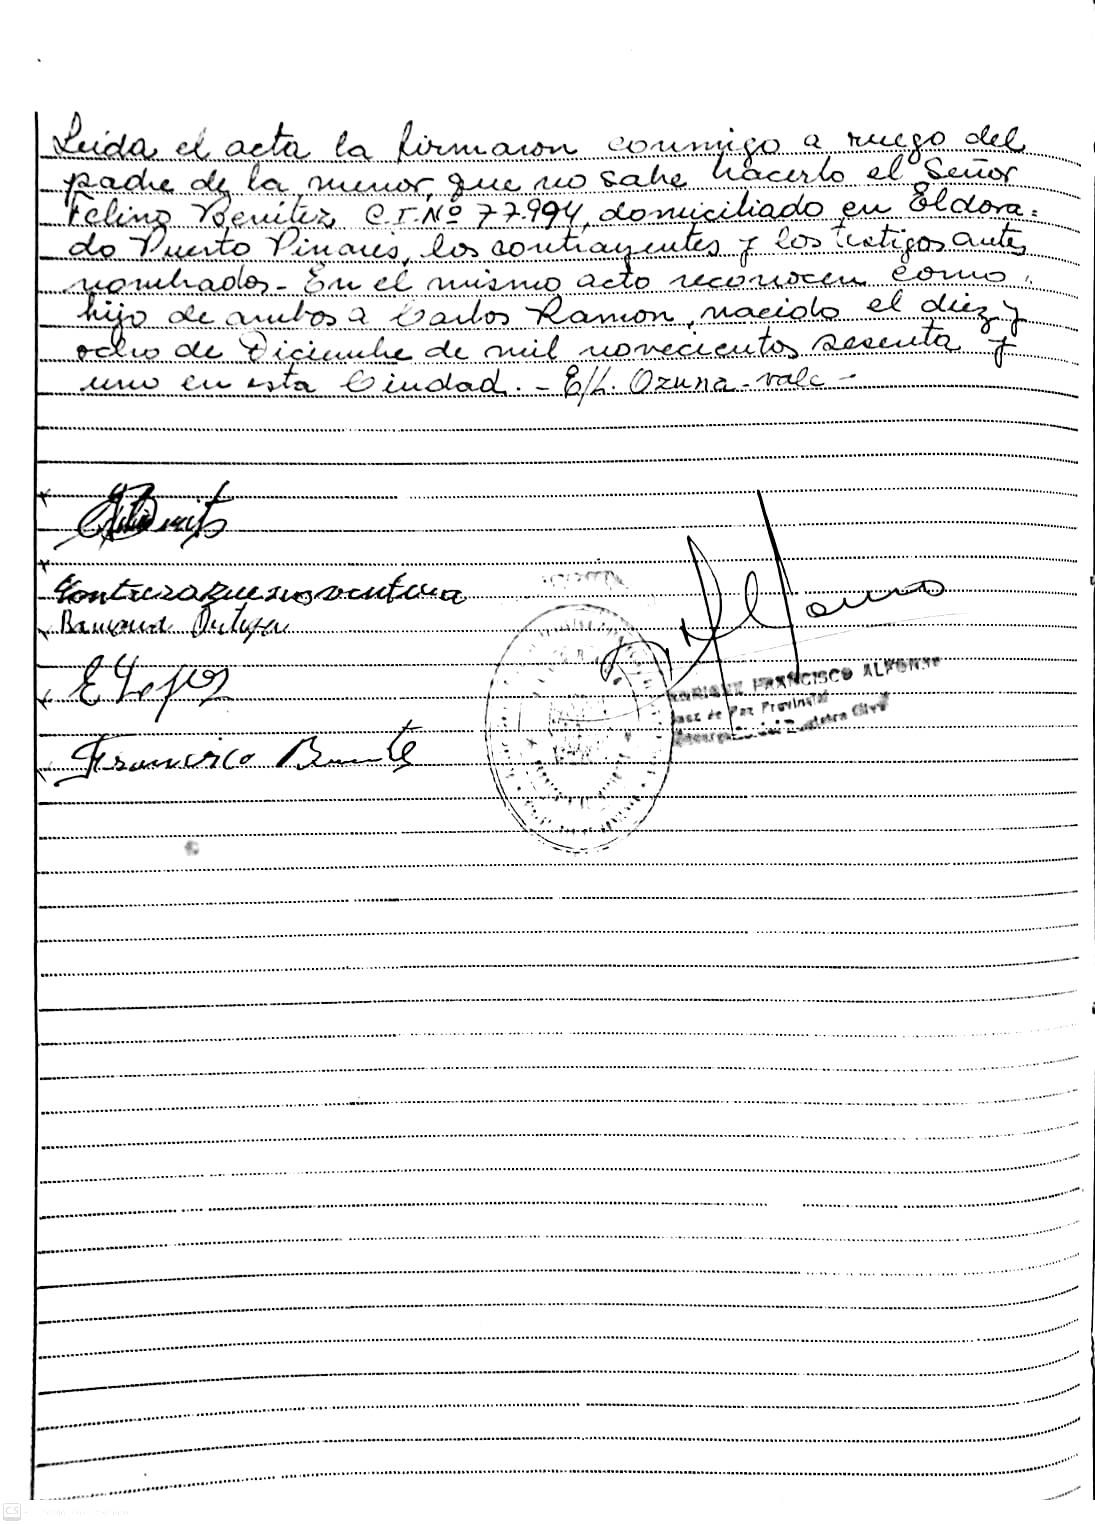 Leida el acta la firmaron conmigo a ruego del
padre de la menor, que no sabe hacerlo el Señor
Felino Benítez C.I. Nº 77.994, domiciliado en Eldora=
do Puerto Pinares, los contrayentes y los testigos antes
nombrados.- En el mismo acto reconocen como
hijo de ambos a Carlos Ramon, nacido el diez y
ocho de Diciembre de mil novecientos sesenta y
uno en esta Ciudad.- E/L. Ozuna-vale-
E Lopez
Francisco
ENRIQUE FRANCISCO ALFONSO
Juez de Paz Provincial
CS